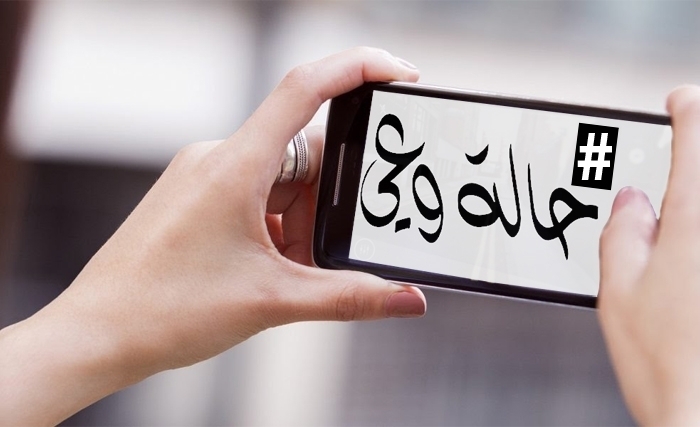 #حالة وعي